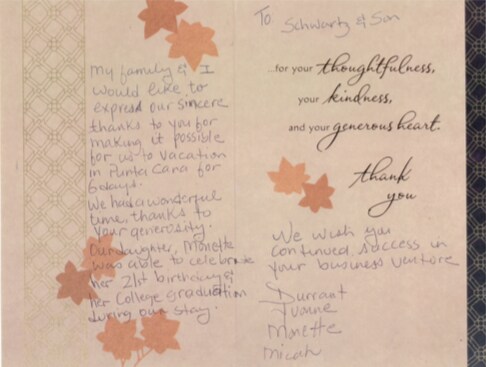 My family & I
would like to
express our sincere
thanks to you for
making it possible
for us to vacation
in Punta Cana for
6 days.
We had a wonderful
time, thanks to
your generosity.
Our daughter, Monette
was able to celebrate
her 21st birthday &
her College graduation
during our stay.
To Schwartz & Son
...for your thoughtfulness,
your kindness,
and your generous heart.
thank
you
We wish you
continued success in
your business venture
Durrant
Yvonne
Monette
Micah